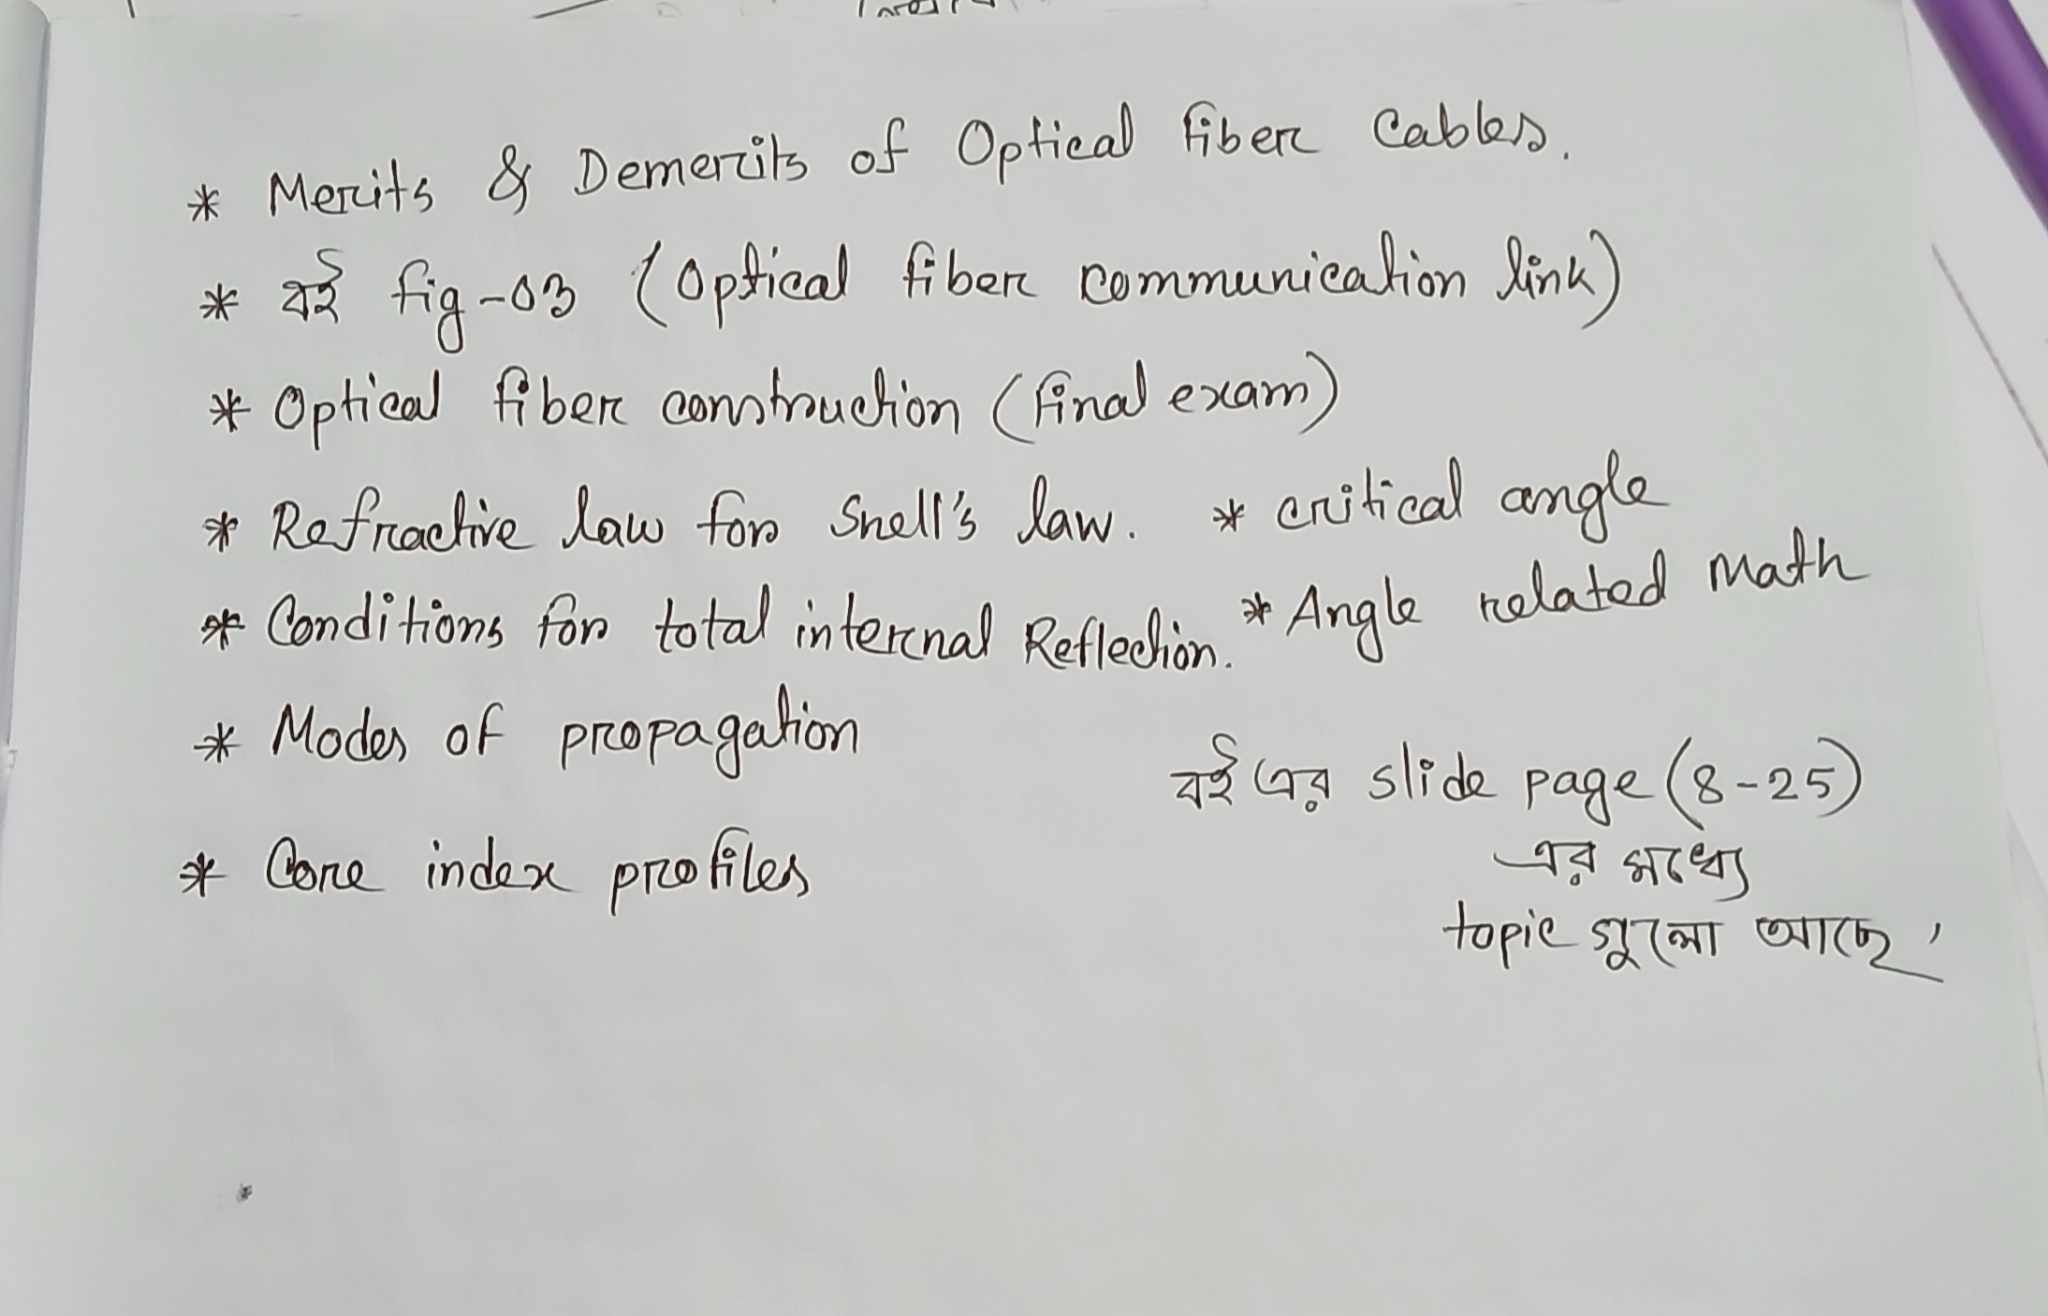 * Merits & Demerits of Optical fiber Cables.
* বই fig-03 (Optical fiber communication link)
* Optical fiber construction (final exam)
* Refractive law for Snell's law. * critical angle
* Conditions for total internal Reflection. * Angle related Math
* Modes of propagation
বই এর slide page (8-25)
এর মধ্যে
* Core index profiles
topic গুলো আছে,